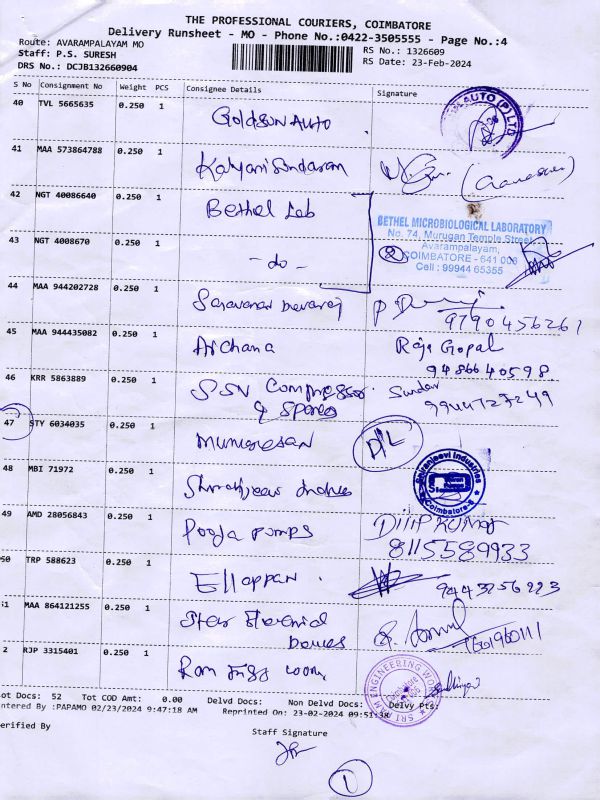 THE PROFESSIONAL COURIERS, COIMBATORE
Delivery Runsheet - MO - Phone No.:0422-3505555 - Page No.:4
Route: AVARAMPALAYAM MO
RS No.: 1326609
Staff: P.S. SURESH
RS Date: 23-Feb-2024
DRS No.: DCJB132660904
S No Consignment No Weight PCS Consignee Details Signature
40 TVL 5665635 0.250 1 Goldsun Auto AUTO (P) LTD
41 MAA 573864788 0.250 1 Kalyani Sundaram
42 NGT 40086640 0.250 1 Bethel Lab
BETHEL MICROBIOLOGICAL LABORATORY
No. 74, Murugan Temple Street
Avarampalayam,
COIMBATORE - 641 006
Cell : 99944 65355
43 NGT 4008670 0.250 1 - do - 2
44 MAA 944202728 0.250 1 9790456261
45 MAA 944435082 0.250 1 Archana Raja Gopal
9486640598
46 KRR 5863889 0.250 1 SSV Compressor & Spares Sundar
9944727249
47 STY 6034035 0.250 1 Murugesan D/L
48 MBI 71972 0.250 1 Industries Coimbatore-6
49 AMD 28056843 0.250 1 Pooja Pumps Dilip Kumar
8115589933
50 TRP 588623 0.250 1 Ellappan 9443256223
51 MAA 864121255 0.250 1 Star
2 RJP 3315401 0.250 1 Ram SRI RAM ENGINEERING WORKS
ot Docs: 52 Tot COD Amt: 0.00 Delvd Docs: Non Delvd Docs: Delvy Pts:
ntered By :PAPAMO 02/23/2024 9:47:18 AM Reprinted On: 23-02-2024 09:51:38
erified By
Staff Signature
1